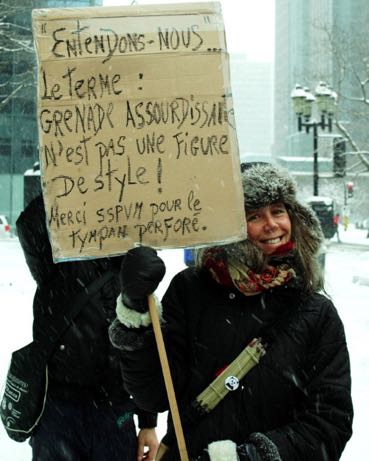 "Entendons-nous...
Le terme :
Grenade assourdissante
N'est pas une figure
De style !
Merci SSPVM pour le
tympan perforé.